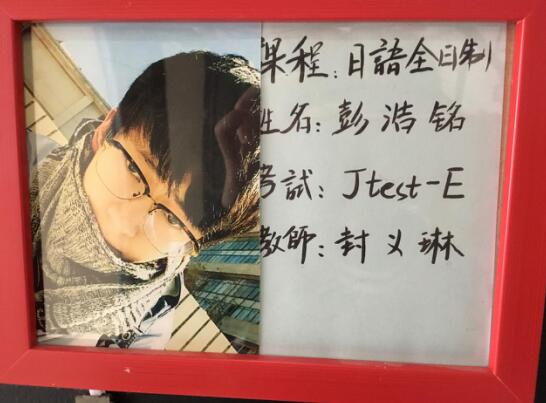 课程:日語全日制
姓名:彭浩铭
考試:Jtest-E
教師:封义琳